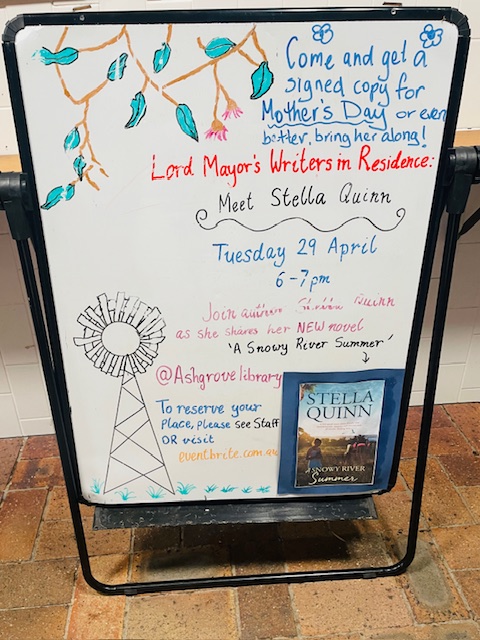 Come and get a
signed copy for
Mother's Day or even
better, bring her along!
Lord Mayor's Writers in Residence:
Meet Stella Quinn
Tuesday 29 April
6-7pm
Join author Stella Quinn
as she shares her NEW novel
'A Snowy River Summer'
@Ashgrovelibrary
To reserve your
place, please see Staff
OR visit
eventbrite.com.au
STELLA
QUINN
A SNOWY RIVER
Summer